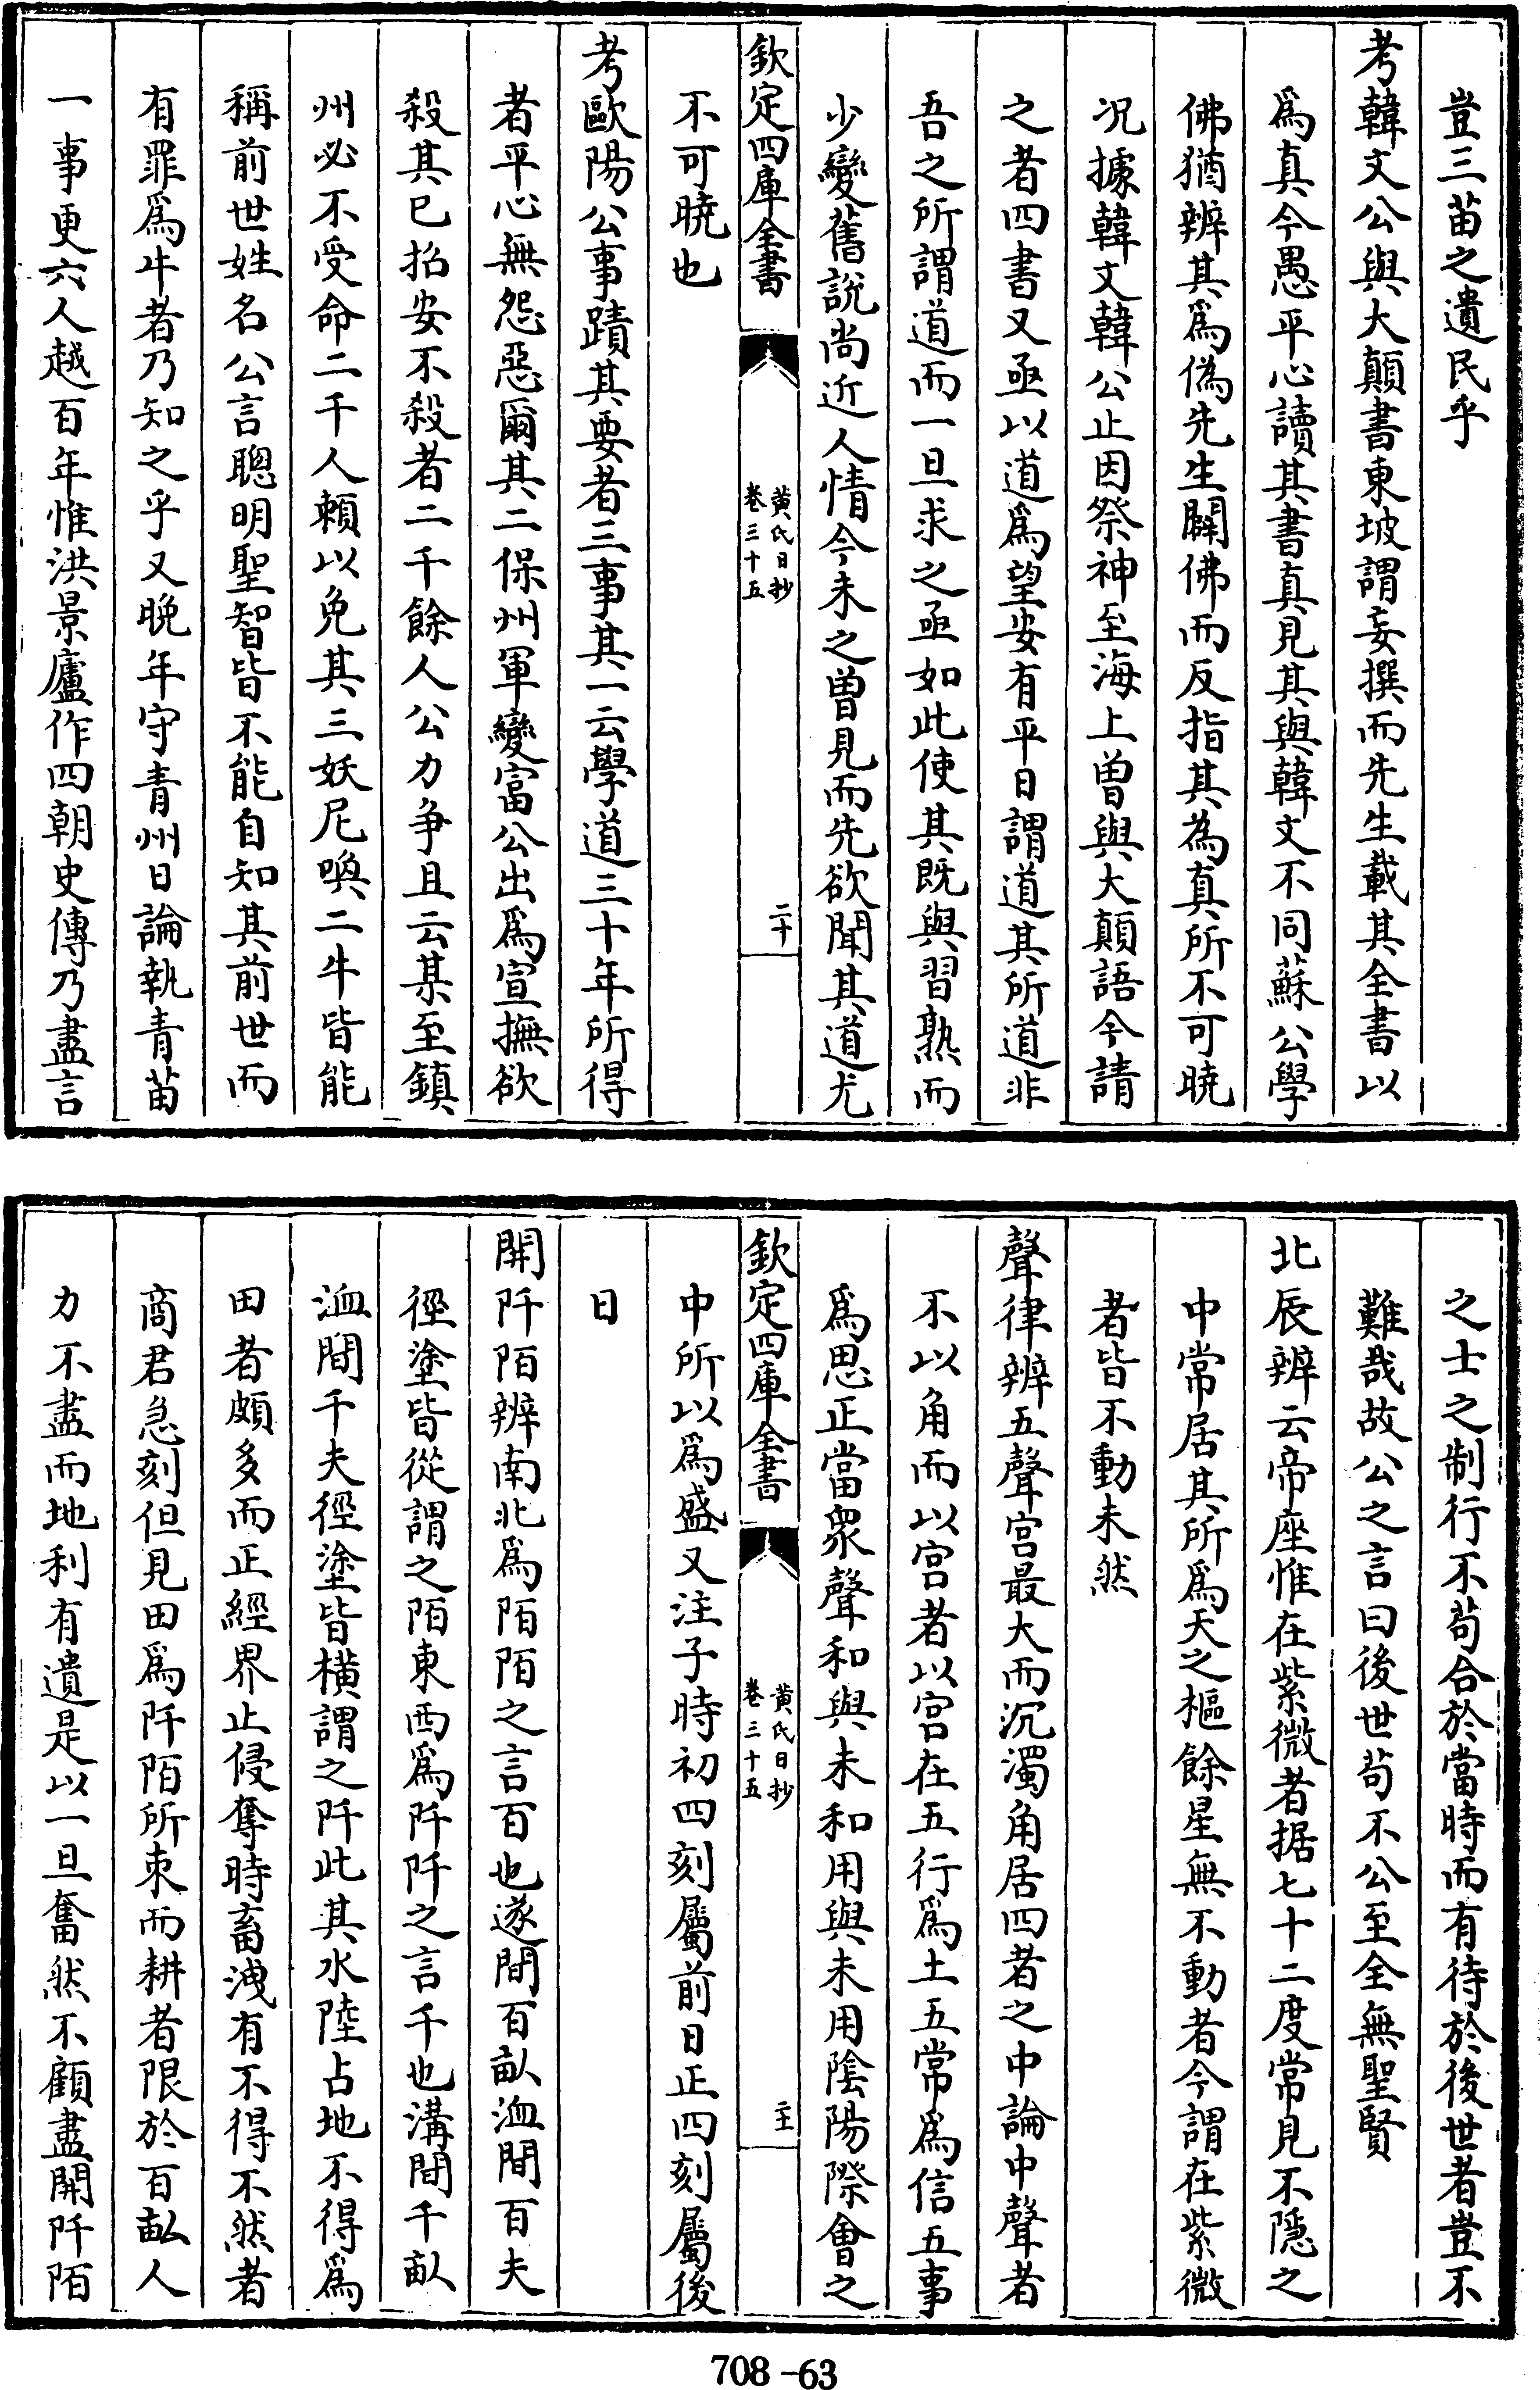 豈三苗之遺民乎
考韓文公與大顛書東坡謂妄撰而先生載其全書以
為真今愚平心讀其書真見其與韓文不同蘇公學
佛猶辨其為偽先生闢佛而反指其為真所不可曉
况據韓文韓公止因祭神至海上曾與大顛語今請
之者四書又亟以道為望安有平日謂道其所道非
吾之所謂道而一旦求之亟如此使其既與習熟而
少變舊說尚近人情今未之曾見而先欲聞其道尤
欽定四庫全書
黄氏日抄
卷三十五
二十
不可曉也
考歐陽公事蹟其要者三事其一云學道三十年所得
者平心無怨惡爾其二保州軍變富公出為宣撫欲
殺其已招安不殺者二千餘人公力争且云某至鎮
州必不受命二千人賴以免其三妖尼喚二牛皆能
稱前世姓名公言聰明聖智皆不能自知其前世而
有罪為牛者乃知之乎又晚年守青州日論執青苗
一事更六人越百年惟洪景廬作四朝史傳乃盡言
之士之制行不苟合於當時而有待於後世者豈不
難哉故公之言曰後世苟不公至全無聖賢
北辰辨云帝座惟在紫微者据七十二度常見不隱之
中常居其所為天之樞餘星無不動者今謂在紫微
者皆不動未然
聲律辨五聲宫最大而沉濁角居四者之中論中聲者
不以角而以宫者以宫在五行為土五常為信五事
為思正當衆聲和與未和用與未用陰陽際會之
欽定四庫全書
黄氏日抄
卷三十五
二十一
中所以為盛又注子時初四刻屬前日正四刻屬後
日
開阡陌辨南北為陌陌之言百也遂間百畝洫間百夫
徑塗皆從謂之陌東西為阡阡之言千也溝間千畝
洫間千夫徑塗皆橫謂之阡此其水陸占地不得為
田者頗多而正經界止侵奪時畜洩有不得不然者
商君急刻但見田為阡陌所束而耕者限於百畝人
力不盡而地利有遺是以一旦奮然不顧盡開阡陌
708-63